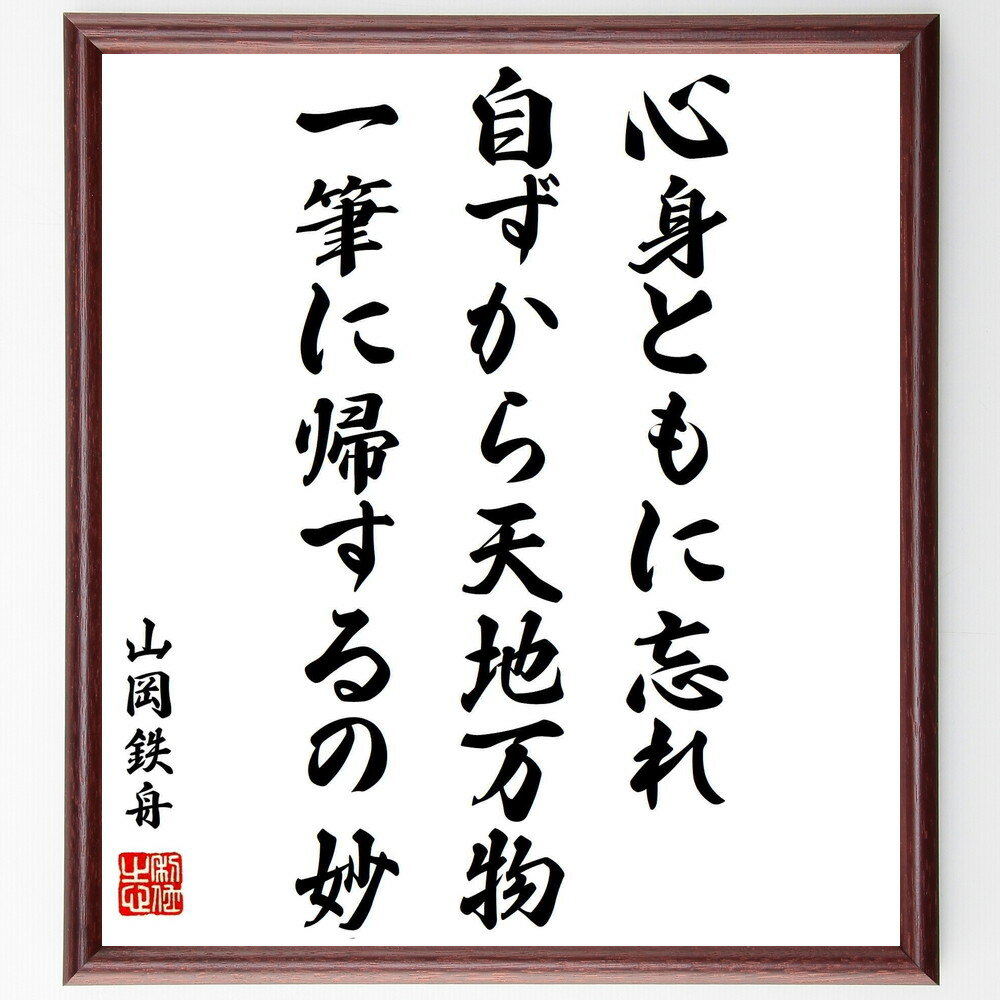 心身ともに忘れ
自ずから天地万物
一筆に帰するの妙
山岡鉄舟